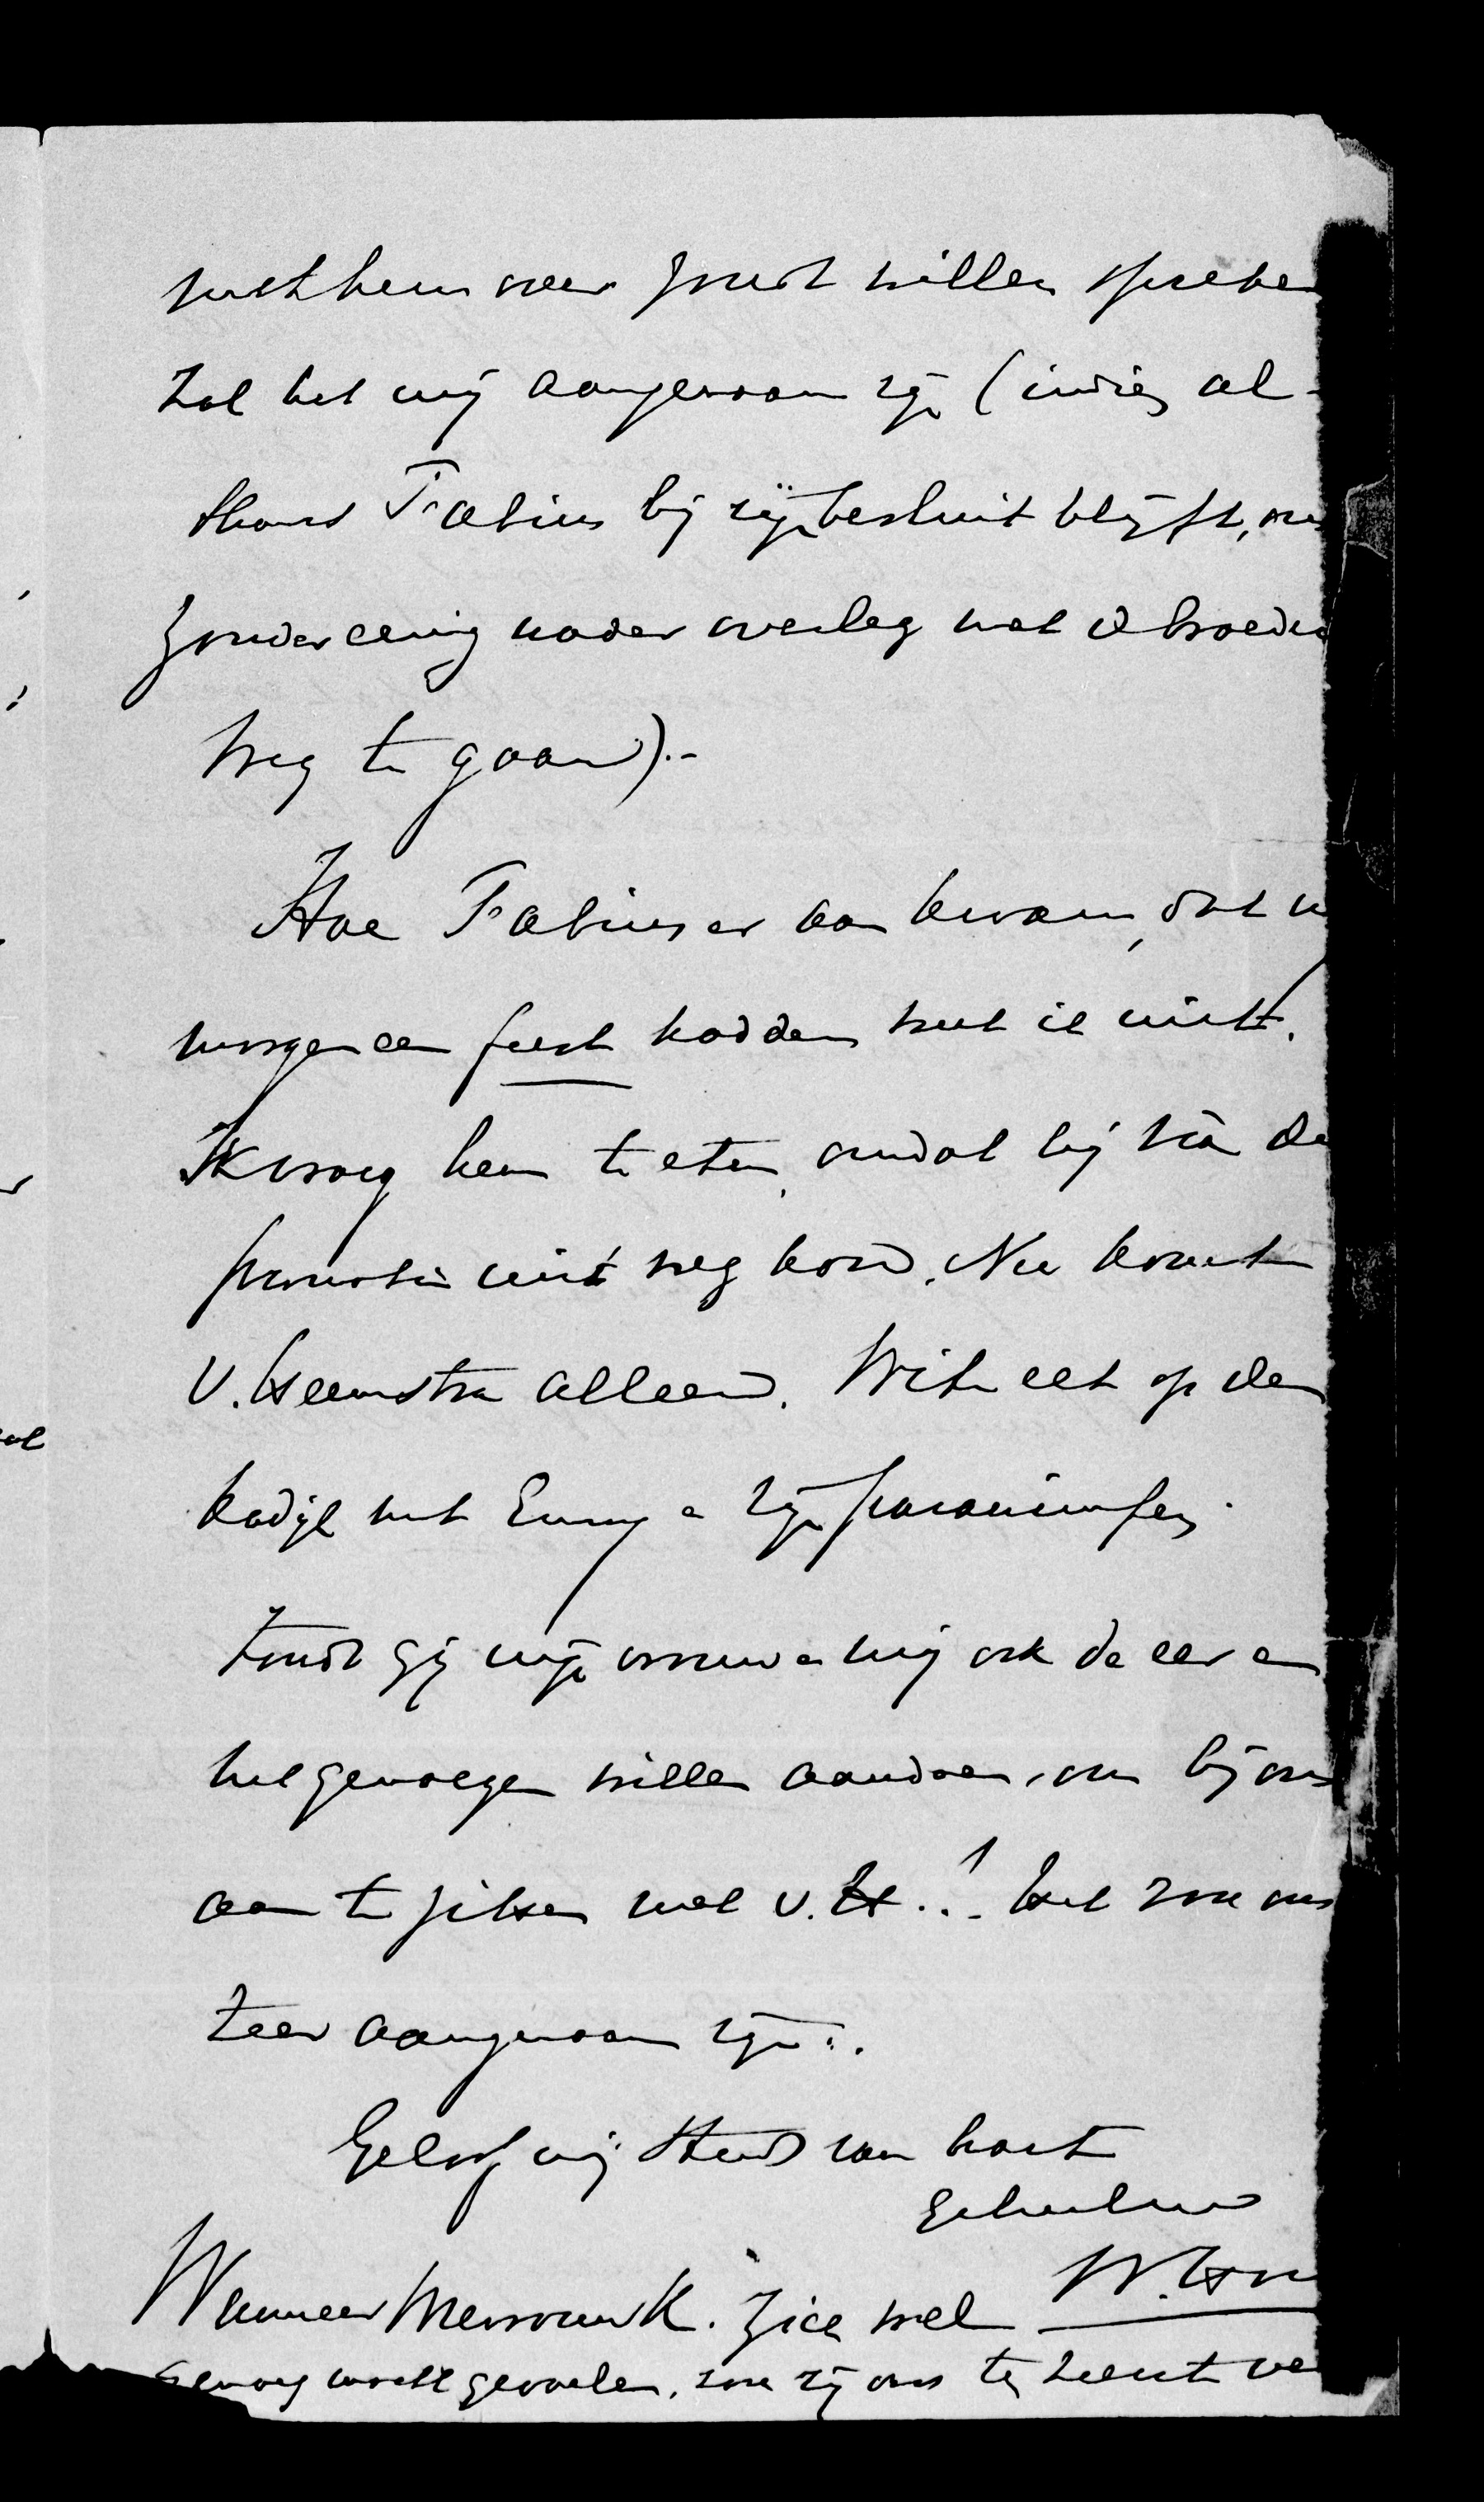 met hem over zoudt willen spreken
zal het mij aangenaam zijn (indien al-
thans Fabius bij zijn besluit blijft, om
zonder eenig nader overleg met d broeders
weg te gaan).-
Hoe Fabius er aan kwam, dat w
morgen een feest hadden weet ik niet.
Ik vroeg hem te eten, omdat hij via de
promotie niet weg kon. Nu komt
v. Heemstra alleen. Wil eet op den
Kadijk met Emmy en zijn paranimfen.
Zoudt gij mijn vrouw en mij ook de eer en
het genoegen willen aandoen, om bij ons
aan te zitten met v. H..! Het zou ons
zeer aangenaam zijn.
Geloof mij steeds van harte
Geheel uw
W. Hov
Wanneer Mevrouw K. zich wel
genoeg mocht gevoelen, zou zij ons ten zeerste ve